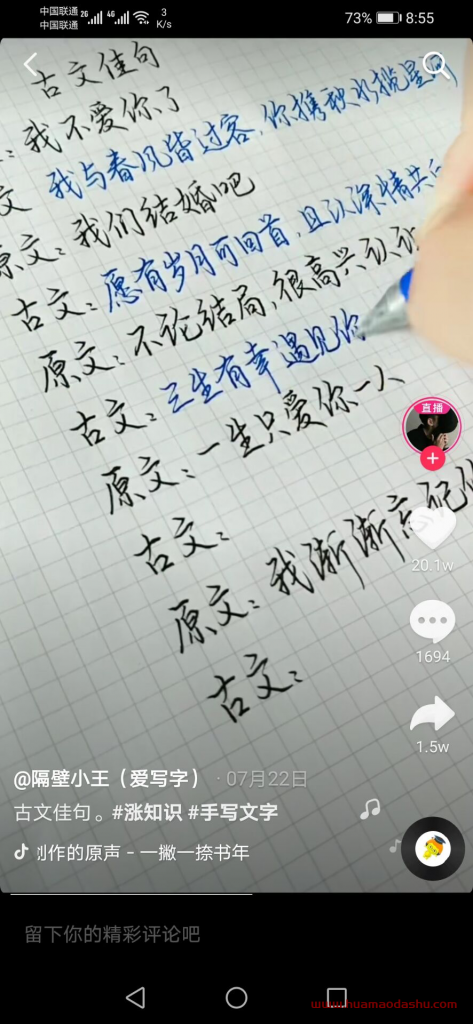 中国联通 2G 4G 3 K/s
中国联通
73% 8:55
古文佳句
：我不爱你了
文 我与春风皆过客，你携秋水揽星河
原文：我们结婚吧
古文：愿有岁月可回首，且以深情共
原文：不论结局，很高兴认识
古文：三生有幸遇见你
原文：一生只爱你一人
古文：
原文：我渐渐忘记
古文：
直播
20.1w
1694
1.5w
@隔壁小王（爱写字） · 07月22日
古文佳句。#涨知识 #手写文字
创作的原声 - 一撇一捺书年
留下你的精彩评论吧
www.huamaodashu.com